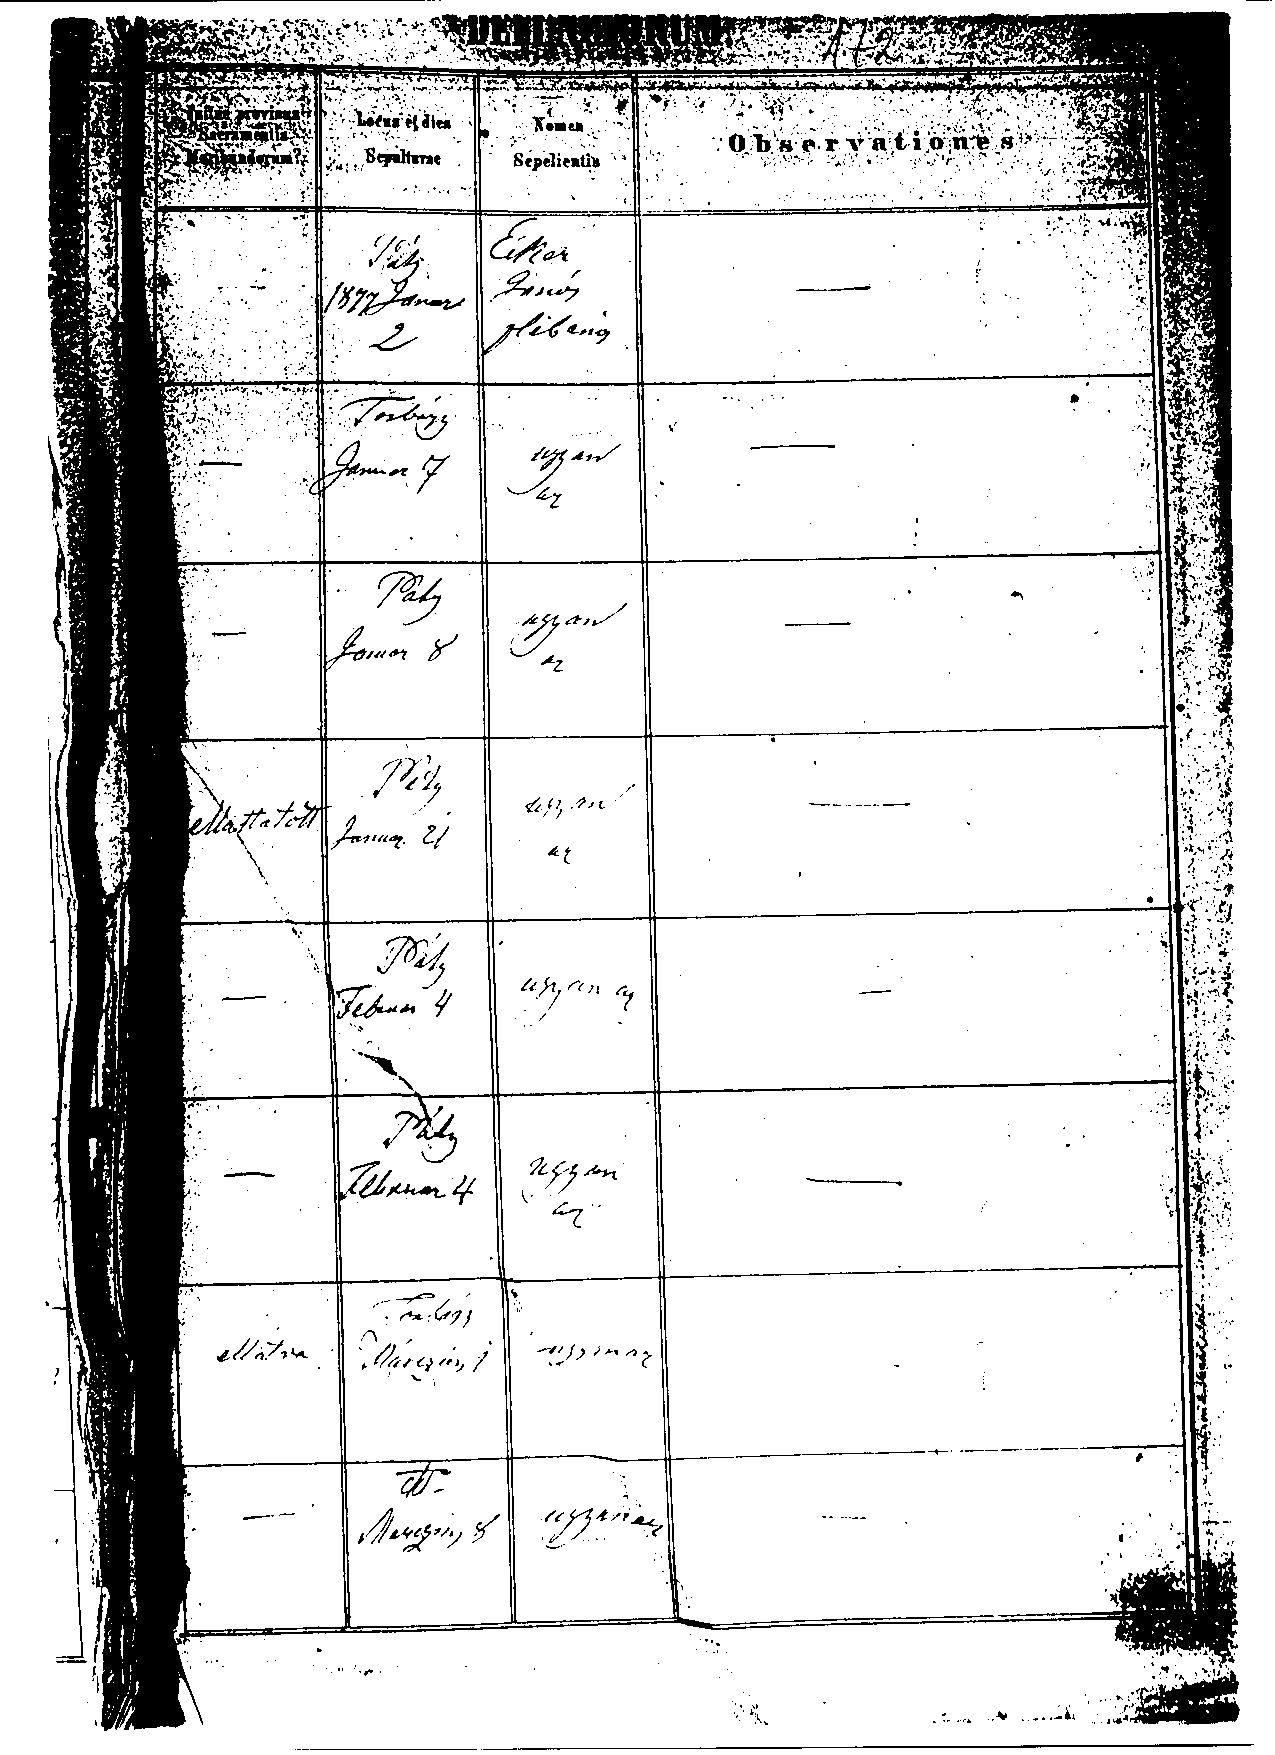 DEFUNCTORUM
172
provisus
Sacramentis
Moribundorum?
Locus et dies
Sepulturae
Nomen
Sepelientis
Observationes
Páty
1877 Januar
2
János
plébános
—
Torbágy
— Januar 7
ugyan
az
—
Páty
— Januar 8
ugyan
az
—
Páty
Januar 21
ugyan
az
—
Páty
— Februar 4
ugyan az
—
Páty
— Februar 4
ugyan
az
—
Torbágy
Márczius 1
ugyanaz
— Márczius 8
ugyanaz
—